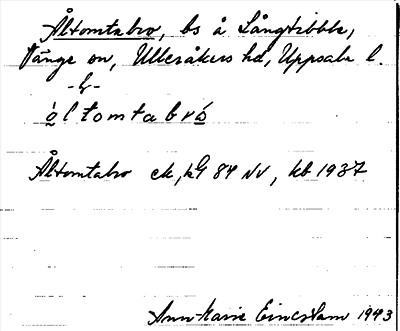 Åltomtabro, bs å Långtibble,
Vänge sn, Ulleråkers hd, Uppsala l.
-b-
òltomtabró
Åltomtabro ek, hG 84 NV, kb 1937
Ann-Marie Einerstam 1943